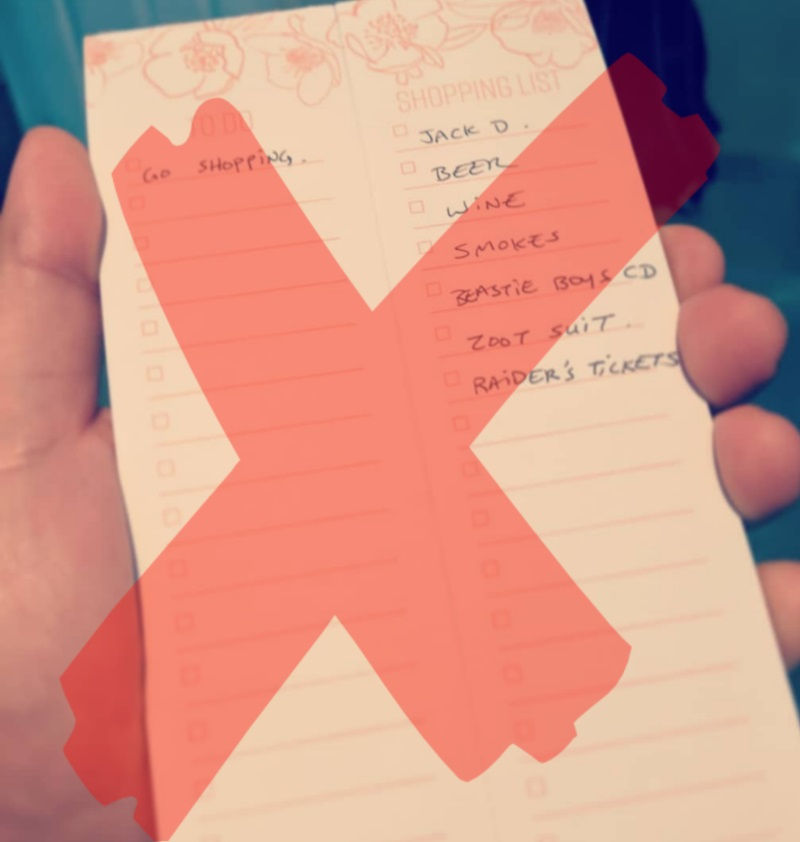 TO DO
Go SHOPPiNG.
SHOPPING LIST
JACK D.
BEER
WiNE
SMOKES
BEASTiE BOYS CD
ZOOT SUiT.
RAiDER'S TiCKETS